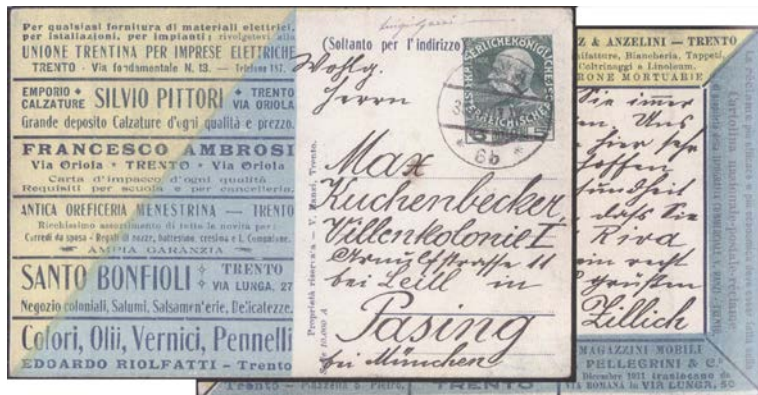 Per qualsiasi fornitura di materiali elettrici,
per istallazioni, per impianti; rivolgetevi alla
UNIONE TRENTINA PER IMPRESE ELETTRICHE
TRENTO - Via fondamentale N. 13. — Telefono 187.
EMPORIO CALZATURE SILVIO PITTORI TRENTO VIA ORIOLA
Grande deposito Calzature d'ogni qualità e prezzo.
FRANCESCO AMBROSI
Via Oriola • TRENTO • Via Oriola
Carta d'impacco d'ogni qualità
Requisiti per scuola e per cancelleria.
ANTICA OREFICERIA MENESTRINA — TRENTO
Ricchissimo assortimento di tutte le novità per:
Corredi da sposa - Regali di nozze, battesimo, cresima e I. Comunione.
AMPIA GARANZIA
SANTO BONFIOLI TRENTO VIA LUNGA, 27
Negozio coloniali, Salumi, Salsamen'erie, Delicatezze.
Colori, Olii, Vernici, Pennelli
EDOARDO RIOLFATTI - Trento
Proprietà riserva'a — V. Manzi, Trento.
10.000 A
(Soltanto per l'indirizzo)
Wohlg.
Herrn
Max
Kuchenbecker,
Villenkolonie I
Arnulfstrasse 11
bei Leill in
Pasing
bei München
6b
5
Z & ANZELINI — TRENTO
Biancheria, Tappeti,
Coltrinaggi a Linoleum.
RONE MORTUARIE
Sie immer
Uns
hier sehr
hoffen
sundheit
dafs Sie
Riva
ein recht
grüßen
Zillich
Cartolina nazionale-postale-réclame
MAGAZZINI MOBILI
PELLEGRINI & Cº
Dicembre 1911 traslocano da
VIA ROMANA in VIA LUNGA, 50
Trento - Piazzella S. Pietro,
TRENTO